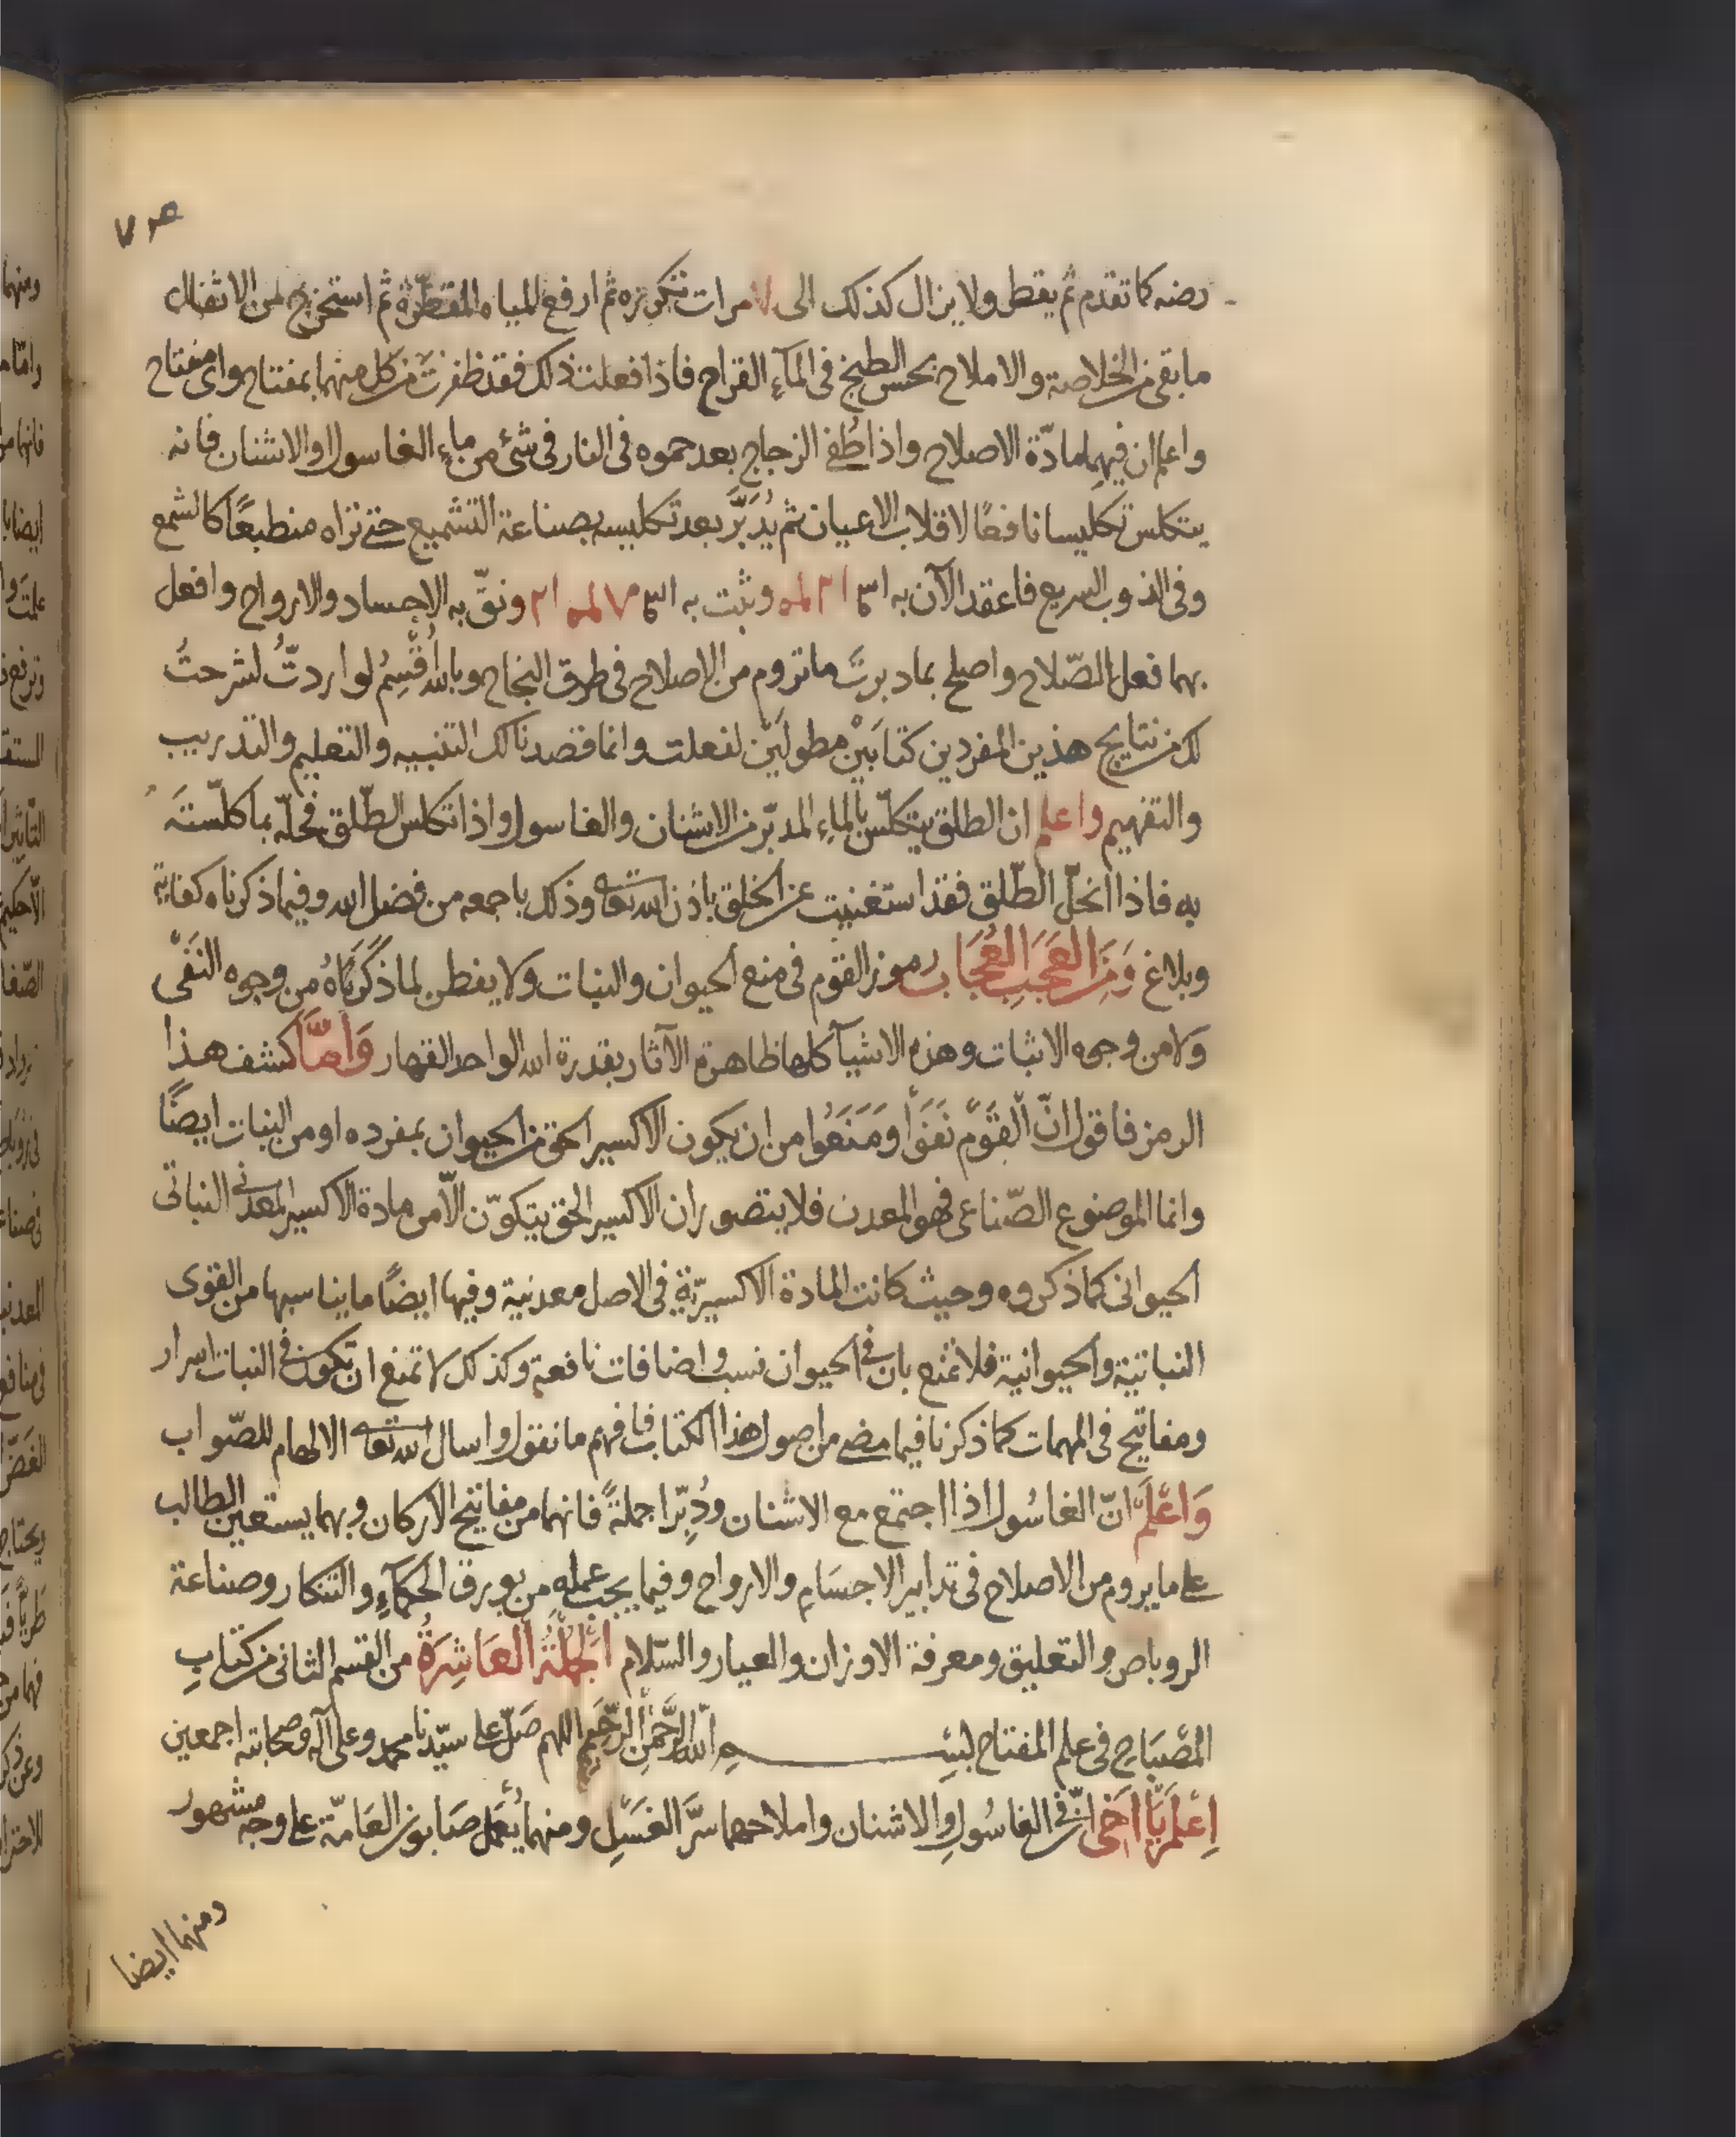 رضه كما تقدم ثم يقطر ولا يزال كذلك الى ٧ مرات تكرره ثم ارفع المياه المقطرة ثم استخرج من الاثفال
ما بقى من الخلاصة والاملاح بحسن الطبخ فى المآء القراح فاذا فعلت ذلك فقد ظفرت من كل منهما بمفتاح واى مفتاح
واعلم ان فيهما مادّة الاصلاح واذا طُفى الزجاج بعد حموه فى النار فى شئ من ماء الغاسول او الاشنان فانه
يتكلس تكليسا نافعًا لاقلاب الاعيان ثم يُدَبَّر بعد تكليسه بصناعة التشميع حتى تراه منطبعًا كالشمع
وفى الذوب السريع فاعقد الآن به وثبت به ونقّ به الاجساد والارواح وافعل
بهما فعل الصّلاح واصلح بما دبرتَ ما تروم من الاصلاح فى طرق النجاح وبالله اُقْسِمُ لو اردتُّ لشرحتُ
لك من نتايج هذين المفردين كتابَيْن مطولَيْن لفعلت وانما قصدنا لك التنبيه والتعليم والتدريب
والتفهيم واعلم ان الطلق يتكلّس بالماء المدبّر من الاشنان والغاسول واذا تكلس الطّلق فحلّه بما كلّستَه
به فاذا انحلّ الطّلق فقد استغنيت عن الخلق باذن الله تعا وذلك باجمعه من فضل الله وفيما ذكرناه كفاية
وبلاغ وَمِنَ العَجَبِ العُجَاب رموز القوم فى منع الحيوان والنبات ولا يفطن لما ذكَرْنَاهُ من وجوه النَفْى
وَلا من وجوه الاثبات وهذه الاشيآ كلها ظاهرة الآثار بقدرة الله الواحد القهار وَامَّا كشف هذا
الرمز فاقول انّ القَوْم نَفَوْا ومَنَعُوا من ان يكون الاكسير الحق من الحيوان بمفرده او من النبات ايضًا
وانما الموضوع الصّناعى فهو المعدن فلا يتصور ان الاكسير الحق يتكوّن الّا من مادة الاكسير المعدنى النباتى
الحيوانى كما ذكروه وحيث كانت المادة الاكسيريّة فى الاصل معدنية وفيها ايضًا ما يناسبها من القوى
النباتية والحيوانية فلا تمنع بان فى الحيوان نسب واضافات نافعة وكذلك لا تمنع ان تكون فى النبات اسرار
ومفاتيح فى المهمات كما ذكرنا فيما مضى من اصول هذا الكتاب فافهم ما نقول واسال الله تعا الالهام للصّواب
وَاعْلَمْ انّ الغاسُول اذا اجتمع مع الاشنان ودُبِّرا جملةً فانهما من مفاتيح الاركان وبهما يستعين الطالب
على ما يروم من الاصلاح فى تدابير الاجسَام والارواح وفيما يجب عمله من بورق الحكمآء والتنكار وصناعة
الروباص والتعليق ومعرفة الاوزان والعيار والسّلام اَلجُمْلَةُ العَاشِرَةُ من القسم الثانى من كتابِ
المصْبَاحِ فى علم المفتاح بسم اللّه الرَّحْمن الرَّحِيم اللهم صَلّ على سيّدنا محمد وعلى آله وصحابته اجمعين
اِعْلَمْ يَا اَخى انّ فى الغاسُولِ والاشنان واملاحهما سرَّ الغَسْلِ ومنهما يُعْمَل صَابون العَامّة على وجه مشهور
ومنهما ايضا